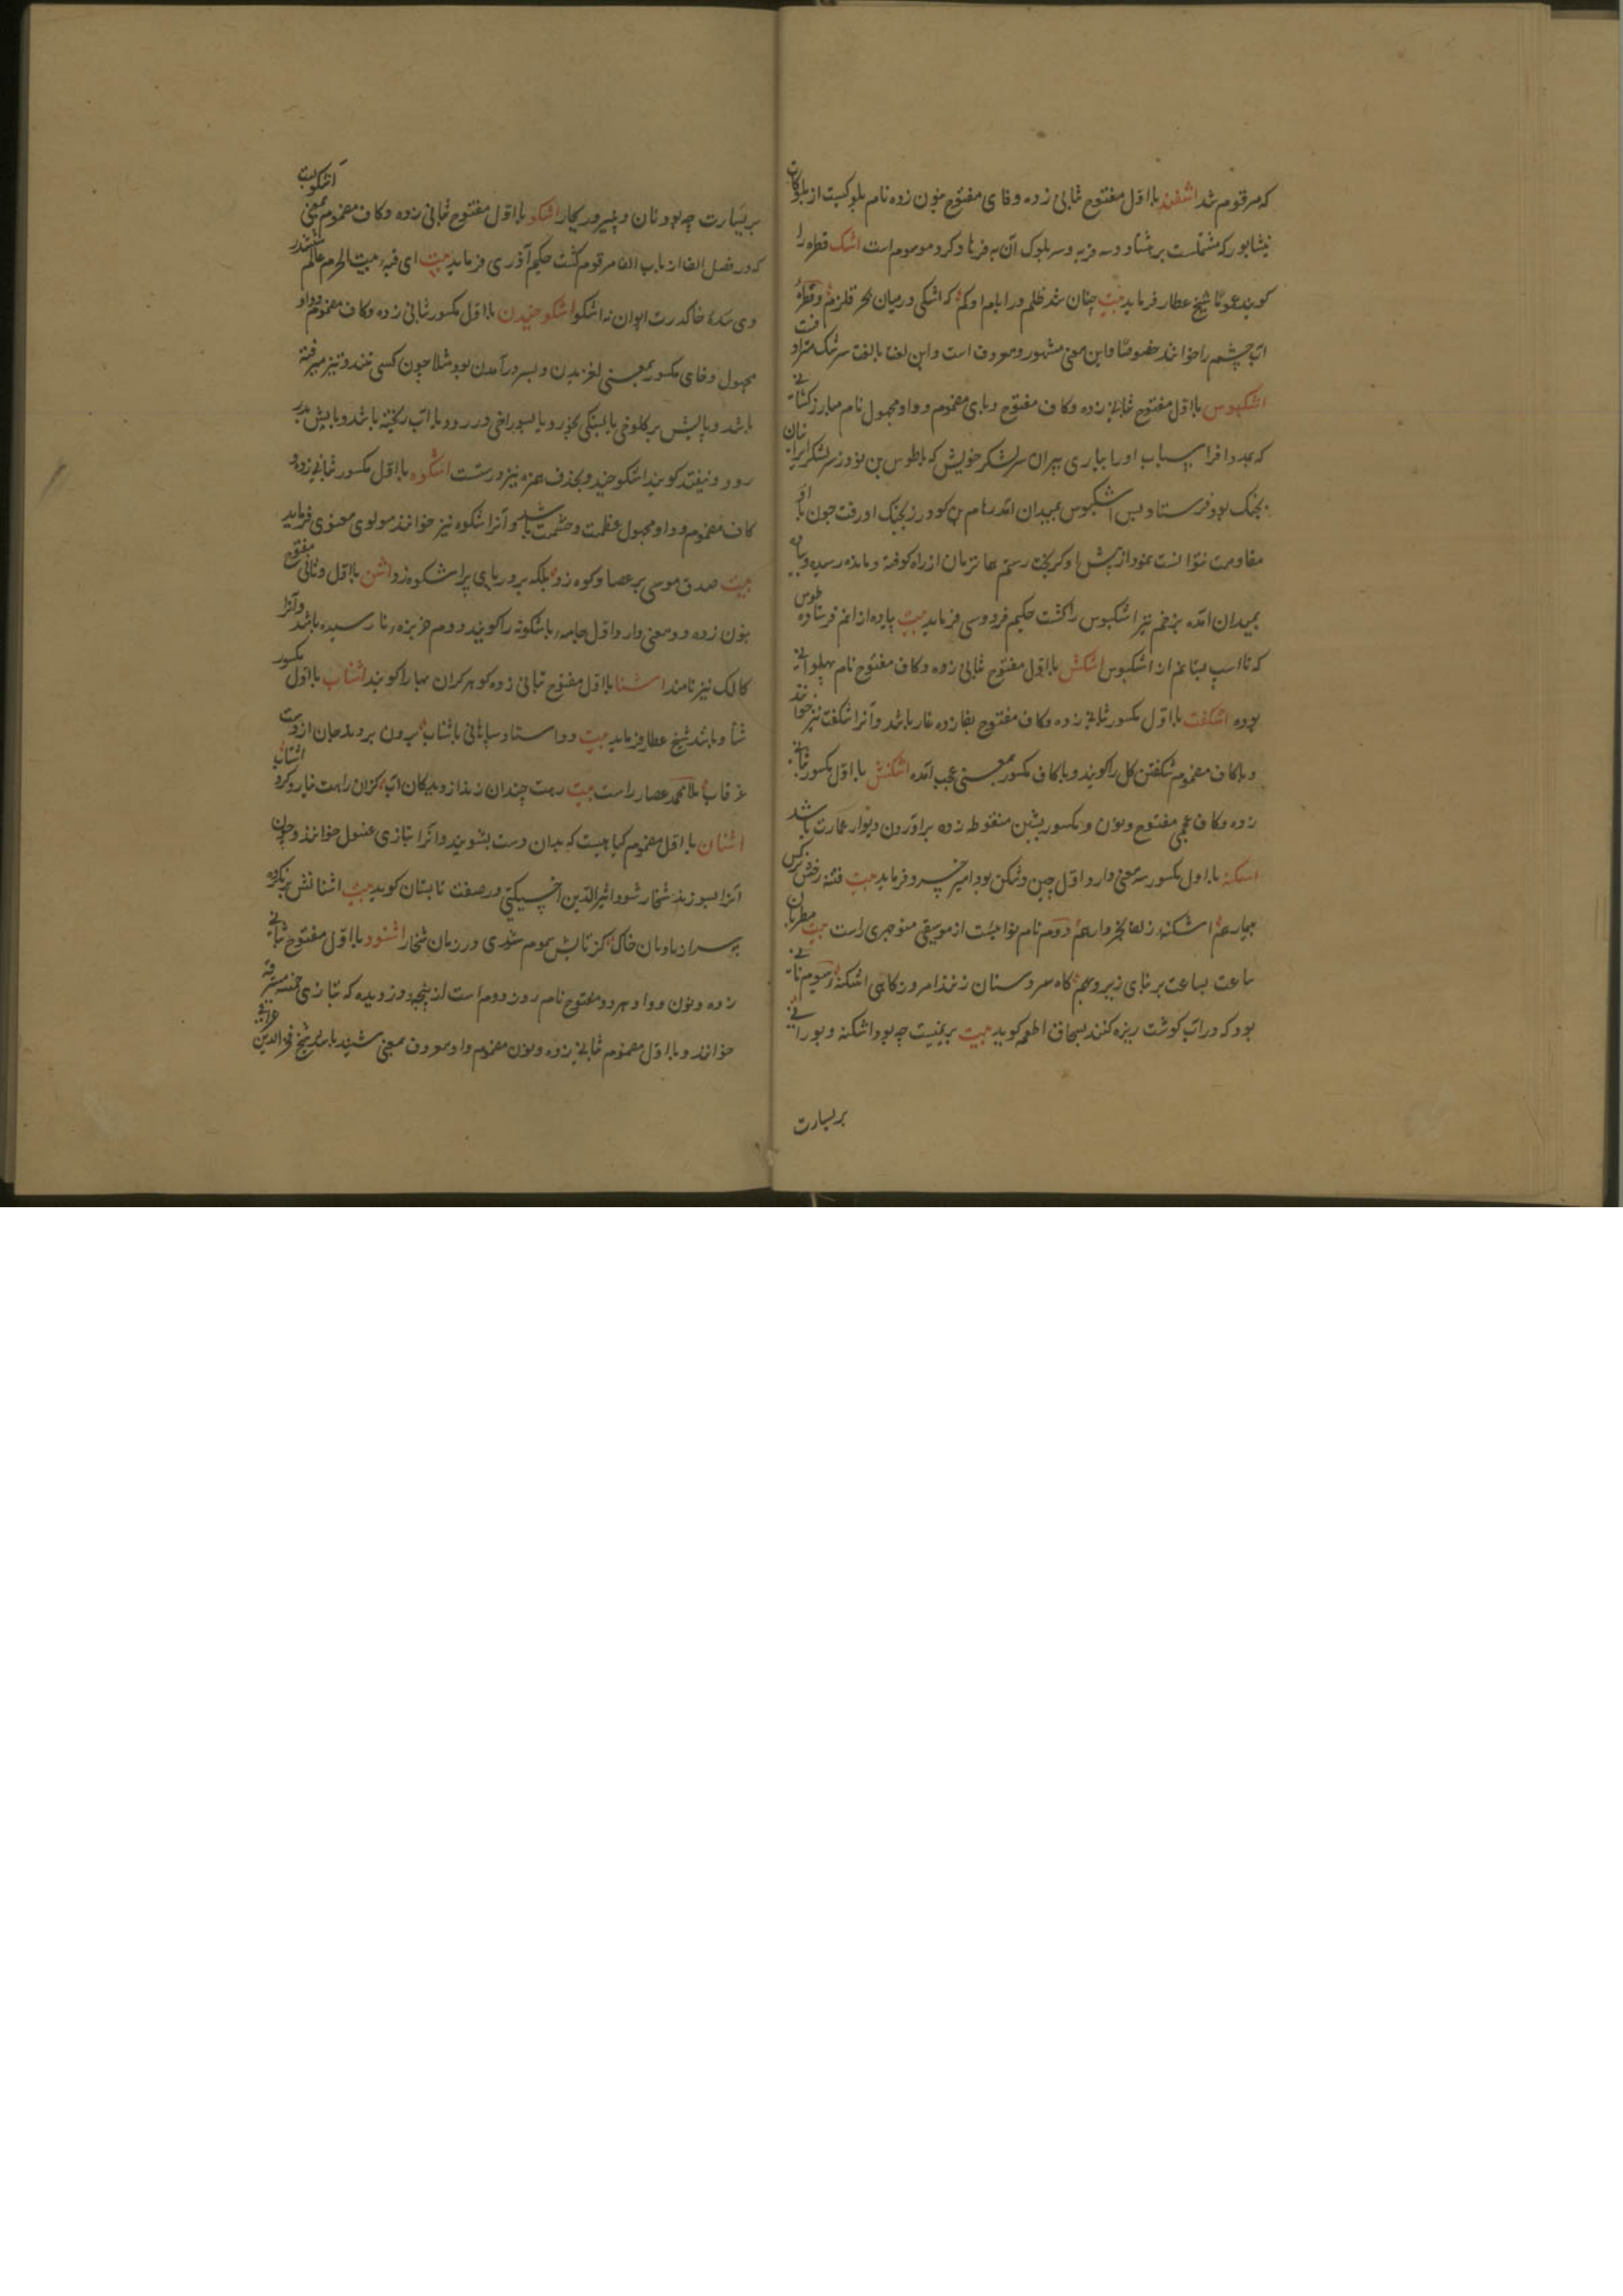 که مرقوم شد اشفند با اول مفتوح ثانی زده و فای مفتوح بنون زده نام بلوکیست از بلوکات
نیشابور که مشتملست بر هشتاد و سه قریه و سر بلوک آن به فرهادگرد موسوم است اشک قطره را
گویند عموما شیخ عطار فرماید بیت چنان شد ظلم در ایام او کم که اشکی در میان بحر قلزم و قطره
آب چشم را خوانند خصوصا و این معنی مشهور و معروف است و این لغت با لغت سرشک مترادفست
اشکبوس با اول مفتوح ثانی زده و کاف مفتوح و بای مضموم و واو مجهول نام مبارز کشانی
که بمدد افراسیاب او را بیاری پیران سر لشکر خویش که با طوس بن نوذر سر لشکر ایرانیان
بجنک بود فرستاد پس اشکبوس بمیدان آمد رهام بن گودرز بجنک او رفت چون با او
مقاومت نتوانست نمود از پیش او گریخت رستم همانزمان از راه کوفته و مانده رسیده پیاده
بمیدان آمده بزخم تیر اشکبوس را کشت حکیم فردوسی فرماید بیت پیاده از انم فرستاده طوس
که تا اسپ بستانم از اشکبوس اشکش با اول مفتوح ثانی زده و کاف مفتوح نام پهلوانی
بوده اشکفت با اول مکسور ثانی زده و کاف مفتوح بفا زده غار باشد و آنرا شکفت نیز خوانند
و با کاف مضموم شکفتن کل را گویند و با کاف مکسور بمعنی عجب آمده اشکنش با اول مکسور ثانی
زده و کاف عجمی مفتوح و نون و مکسور بشین منقوطه زده برآوردن دیوار عمارت باشد
اشکنه با اول مکسور سه معنی دارد اول چین و شکن بود امیر خسرو فرماید بیت فتنه رخش نرکس
بیمار هم اشکنه زلف نخردار هم دوم نام نوائیست از موسیقی منوچهری راست بیت مطربان
ساعت بساعت بر نای زیر و بم گاه سروستان زنند امروز گاهی اشکنه سوم نانی
بود که در آب گوشت ریزه کنند بسحاق اطعمه گوید بیت چه بود اشکنه و بورانی
بر یسارت
اشکوبیت
بر یسارت چه بود نان و پنیر و ریچار اشکو با اول مفتوح ثانی زده و کاف مضموم بمعنی
که در فصل الف از باب الف مرقوم گشت حکیم آذری فرماید بیت ای قبه بیت الحرم عالم ششدر
وی سده خاک درت ایوان نه اشکو اشکوخیدن با اول مکسور ثانی زده و کاف مضموم و واو
مجهول و خای مکسور بمعنی لغزیدن و بسر درآمدن بود مثلا چون کسی تند و تیز میرفته
باشد و پایش بر کلوخی یا بسنگی بخورد یا بسوراخی در رود یا آب ریخته باشد و پایش بدر
رود و نیفتد گویند اشکوخید و بحذف همزه نیز درست اشکوه با اول مکسور ثانی زده و
کاف مضموم و واو مجهول عظمت و حشمت باشد و آنرا شکوه نیز خوانند مولوی معنوی فرماید
بیت صدق موسی بر عصا و کوه زد بلکه بر دریای پر اشکوه زد اشن با اول و ثانی مفتوح
بنون زده دو معنی دارد اول جامه باشگونه را گویند دوم خربزه نارسیده باشد و آنرا
کالک نیز نامند اشنا با اول مفتوح ثبانی زده گوهر گران بها را گویند اشناب با اول مکسور
شنا و باشد شیخ عطار فرماید بیت دو استاد سباهانی باشناب برون بردند جان از دست
غرقاب ملا محمد عصار راست بیت چندان زند از دیدگان آب کزان راهت نیارد کرد اشناب
اشنان با اول مضموم گیاهیست که بدان دست بشویند و آنرا بتازی غسول خوانند و چون
آنرا بسوزند شخار شود اثیرالدین اخسیکتی در صفت تابستان گوید بیت اشنانش برنکرده
سر از بادبان خاک کز تابش سموم شدی در زمان شخار اشنود با اول مفتوح ثانی
زده و نون و واو هر دو مفتوح نام روز دوم است از پنجه دزدیده که بتازی خمسه مسترقه
خوانند و با اول مضموم ثانی زده و نون مضموم واو معروف بمعنی شنید باشد شیخ فخرالدین عراقی